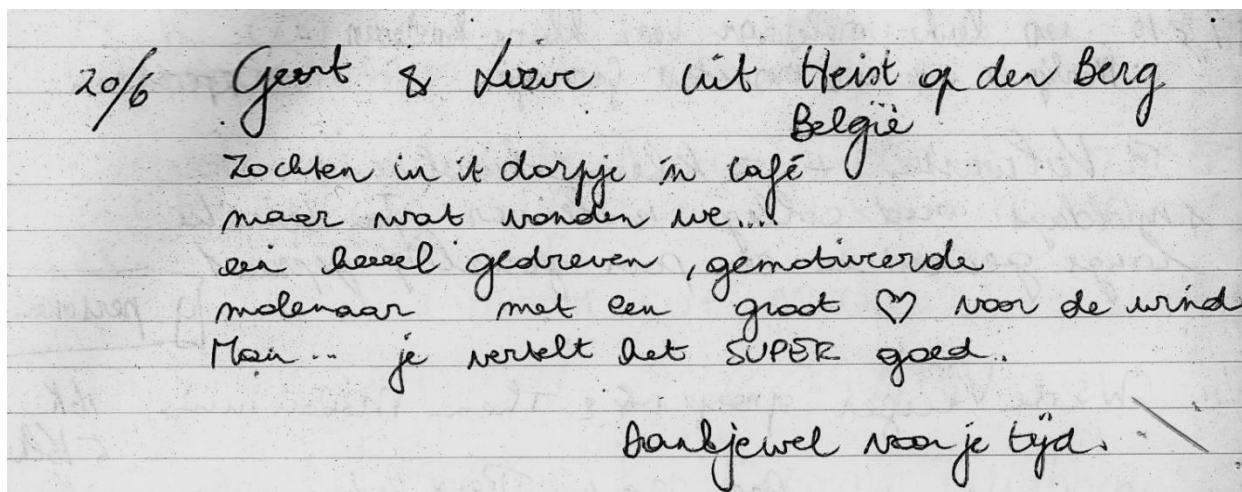 20/6 Geert & Lieve uit Heist op den Berg
België
Zochten in 't dorpje 'n café
maar wat vonden we....
een heeel gedreven, gemotiveerde
molenaar met een groot ♡ voor de wind
... je vertelt het SUPER goed.
Dankjewel voor je tijd.